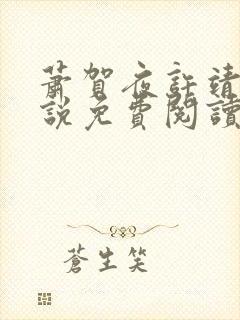 蕭賀夜許靖
說免費閱讀
蒼生笑